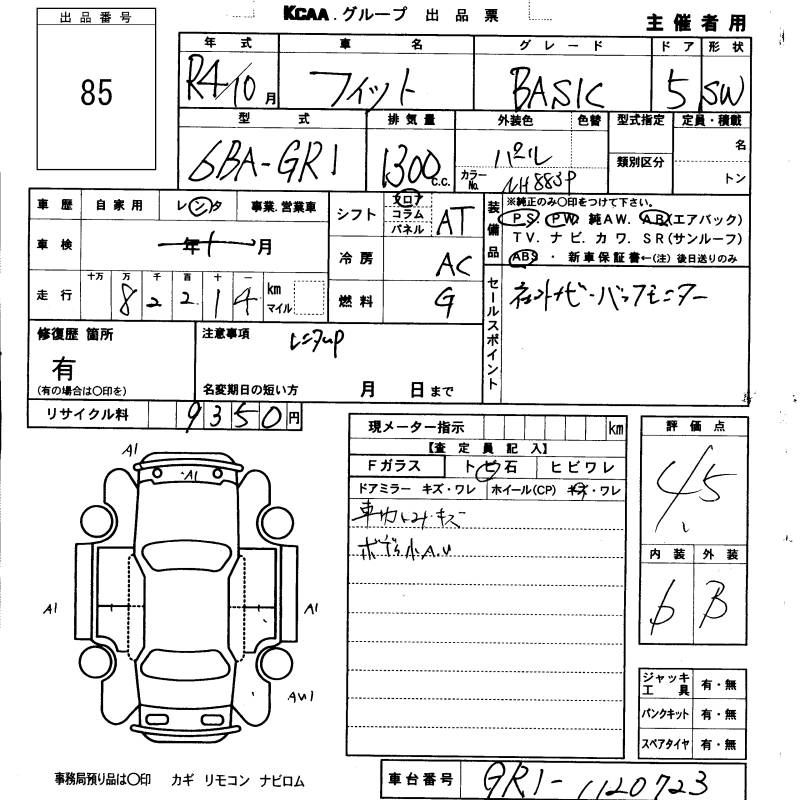 KCAA.グループ 出品票
主催者用
出品番号
85
年式 車名 グレード ドア 形状
R4/10月 フィット BASIC 5 SW
型式 排気量 外装色 色替 型式指定 定員・積載
6BA-GR1 1300c.c. パール 類別区分 名
カラーNo. NH883P トン
車歴 自家用 レンタ 事業.営業車
シフト フロア コラム パネル AT
装備品 ※純正のみ〇印をつけて下さい。
PS. PW. 純AW. AB(エアバック)
TV. ナビ. カワ. SR(サンルーフ)
ABS ・ 新車保証書←(注)後日送りのみ
車検 年 月
冷房 AC
走行 十万 万 千 百 十 一 km マイル
82214
燃料 G
セールスポイント
ネットナビ・バックモニター
修復歴 箇所
有
(有の場合は〇印を)
注意事項
レンタup
名変期日の短い方 月 日まで
リサイクル料 9350円
現メーター指示 km
【査定員記入】
Fガラス トビ石 ヒビワレ
ドアミラー キズ・ワレ ホイール(CP) キズ・ワレ
車内トみ・キズ
ボディ小A.U
評価点
4.5
内装 外装
b B
A1
A1
A1 A1
AU1
ジャッキ工具 有・無
パンクキット 有・無
スペアタイヤ 有・無
事務局預り品は〇印 カギ リモコン ナビロム
車台番号 GR1-1120723